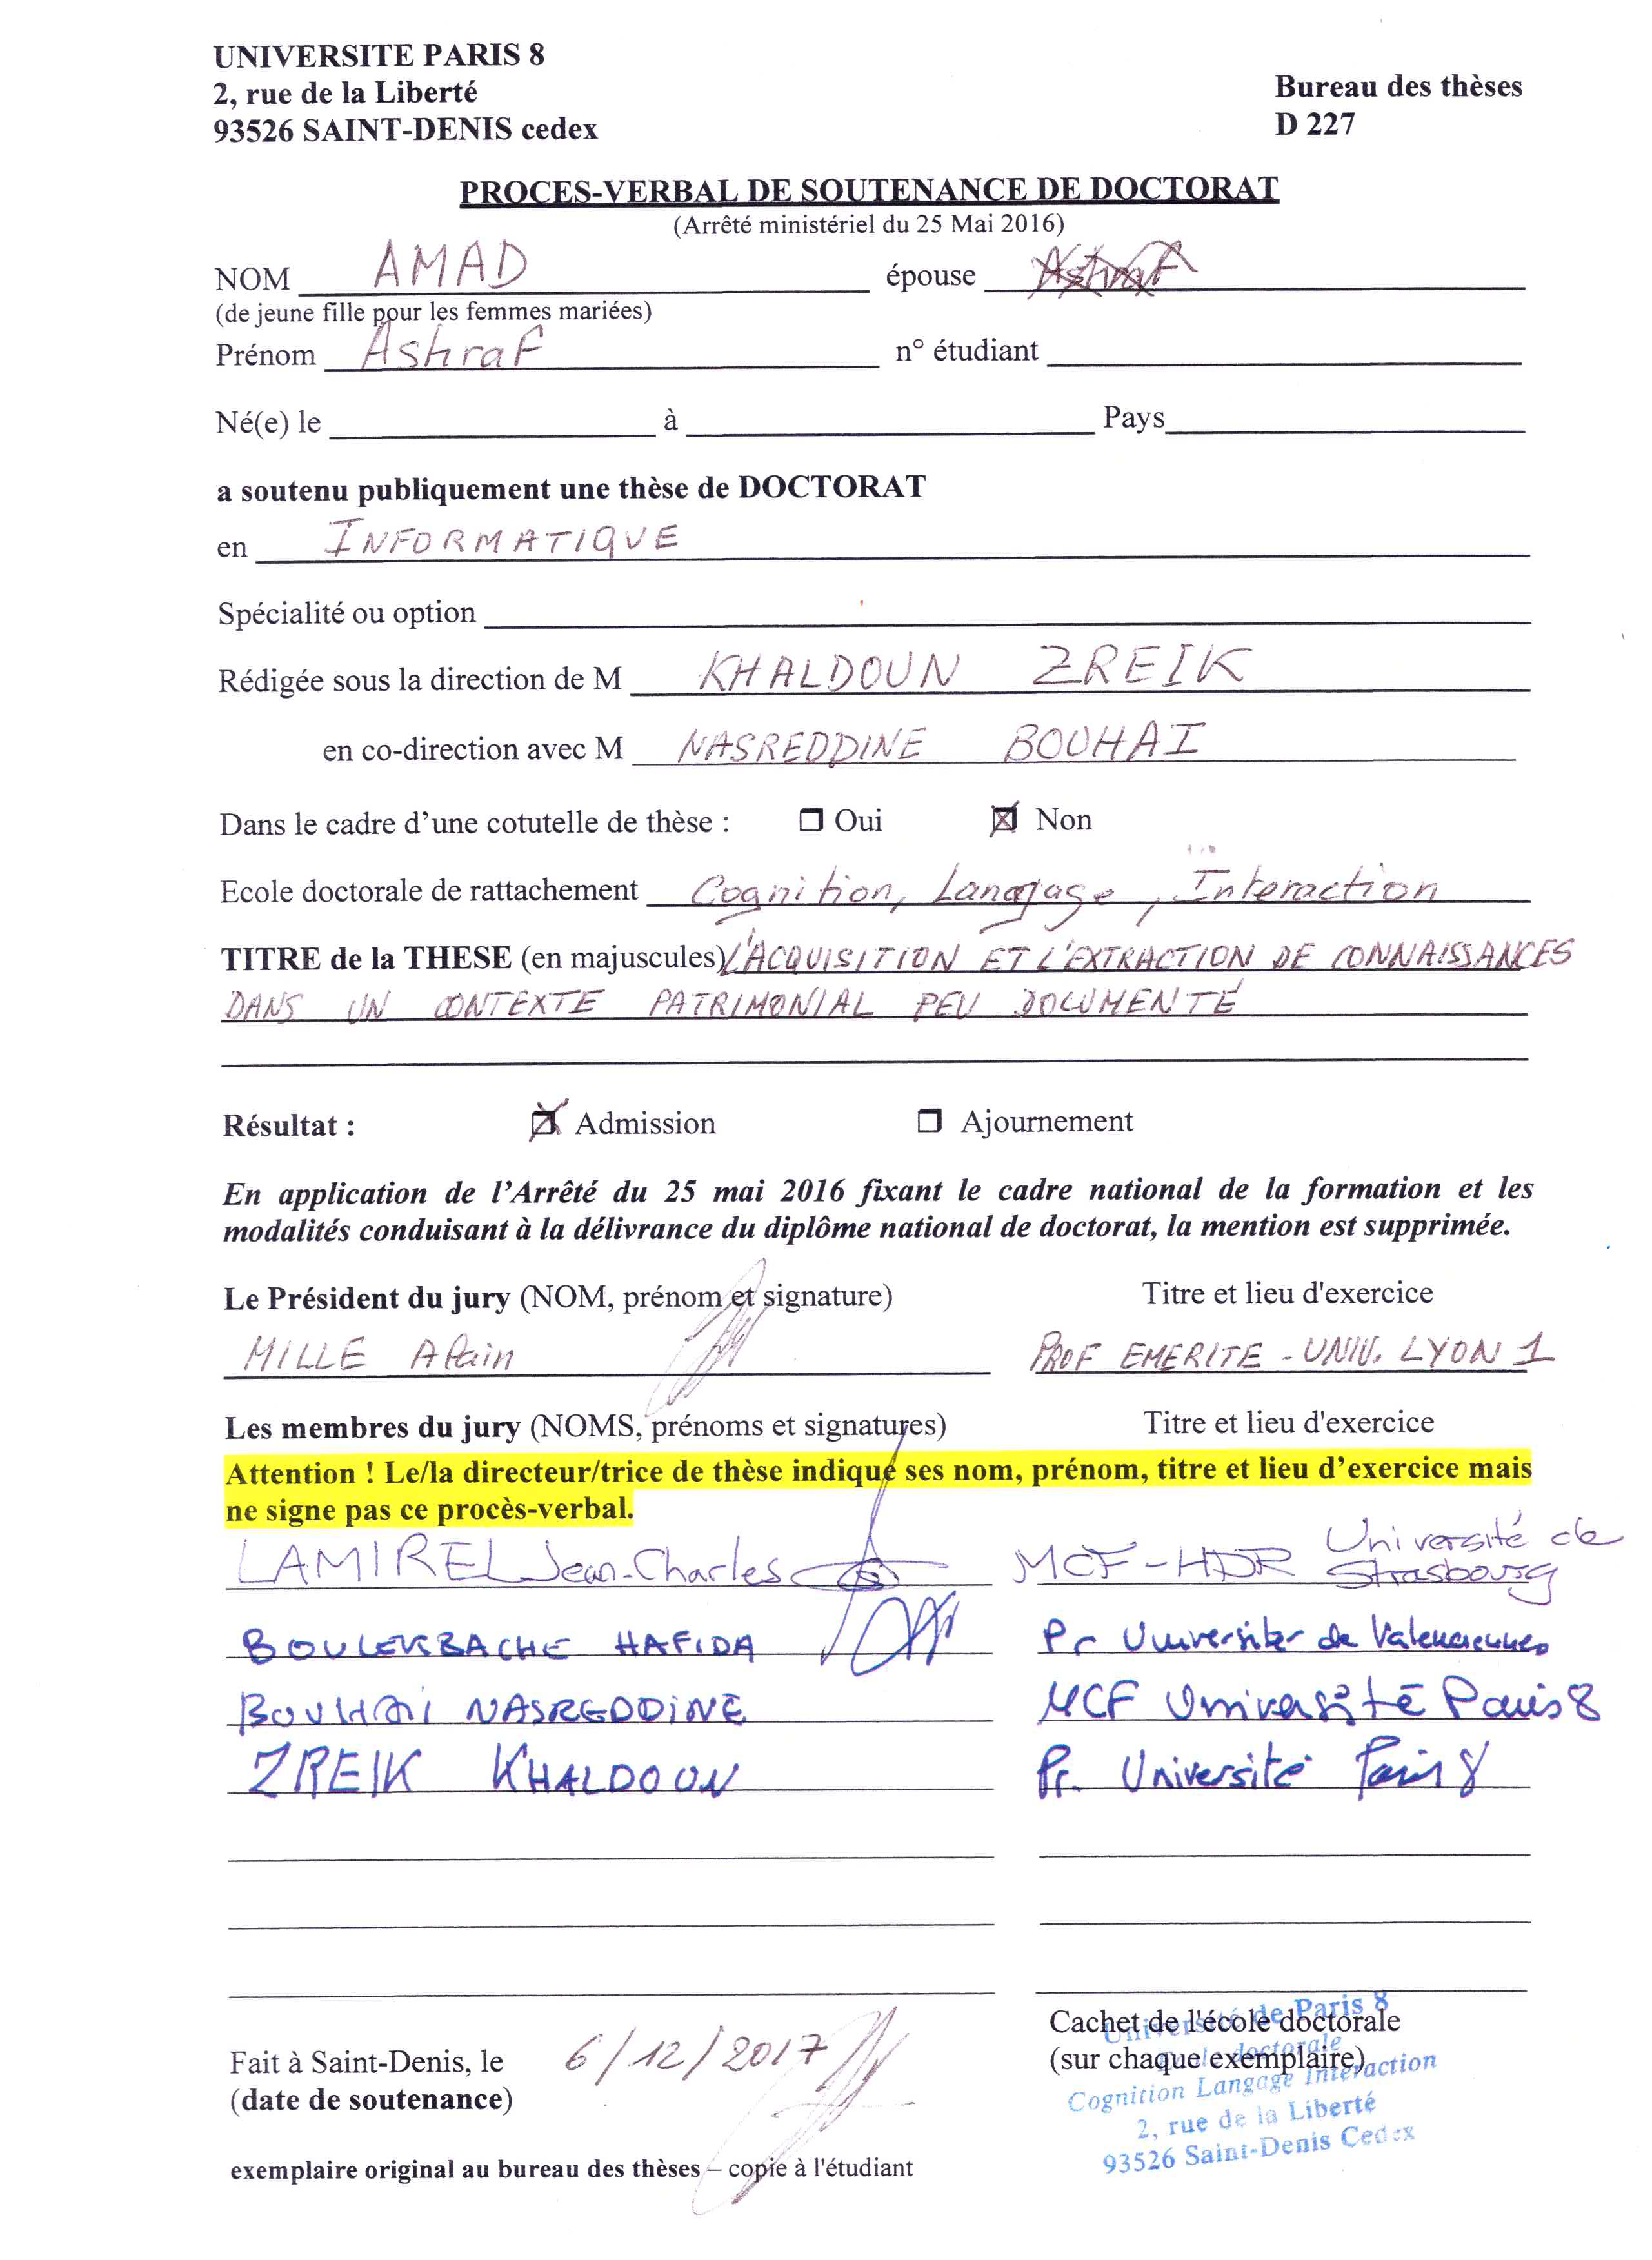 UNIVERSITE PARIS 8
2, rue de la Liberté
93526 SAINT-DENIS cedex
Bureau des thèses
D 227
PROCES-VERBAL DE SOUTENANCE DE DOCTORAT
(Arrêté ministériel du 25 Mai 2016)
NOM AMAD épouse Ashraf
(de jeune fille pour les femmes mariées)
Prénom Ashraf n° étudiant
Né(e) le à Pays
a soutenu publiquement une thèse de DOCTORAT
en INFORMATIQUE
Spécialité ou option
Rédigée sous la direction de M KHALDOUN ZREIK
en co-direction avec M NASREDDINE BOUHAI
Dans le cadre d'une cotutelle de thèse : Oui Non
Ecole doctorale de rattachement Cognition, Langage, Interaction
TITRE de la THESE (en majuscules) L'ACQUISITION ET L'EXTRACTION DE CONNAISSANCES
DANS UN CONTEXTE PATRIMONIAL PEU DOCUMENTÉ
Résultat : Admission Ajournement
En application de l'Arrêté du 25 mai 2016 fixant le cadre national de la formation et les
modalités conduisant à la délivrance du diplôme national de doctorat, la mention est supprimée.
Le Président du jury (NOM, prénom et signature) Titre et lieu d'exercice
MILLE Alain PROF EMERITE - UNIV. LYON 1
Les membres du jury (NOMS, prénoms et signatures) Titre et lieu d'exercice
Attention ! Le/la directeur/trice de thèse indique ses nom, prénom, titre et lieu d'exercice mais
ne signe pas ce procès-verbal.
LAMIREL Jean-Charles MCF-HDR Université de Strasbourg
BOULEKBACHE HAFIDA Pr Universiter de Valenciennes
BOUHAÏ NASREDDINE MCF Université Paris 8
ZREIK KHALDOUN Pr. Université Paris 8
Fait à Saint-Denis, le 6/12/2017
(date de soutenance)
Cachet de l'école doctorale
(sur chaque exemplaire)
Université de Paris 8
Ecole doctorale
Cognition Langage Interaction
2, rue de la Liberté
93526 Saint-Denis Cedex
exemplaire original au bureau des thèses – copie à l'étudiant